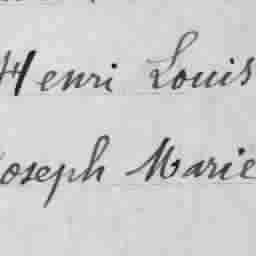 Henri Louis
Joseph Marie